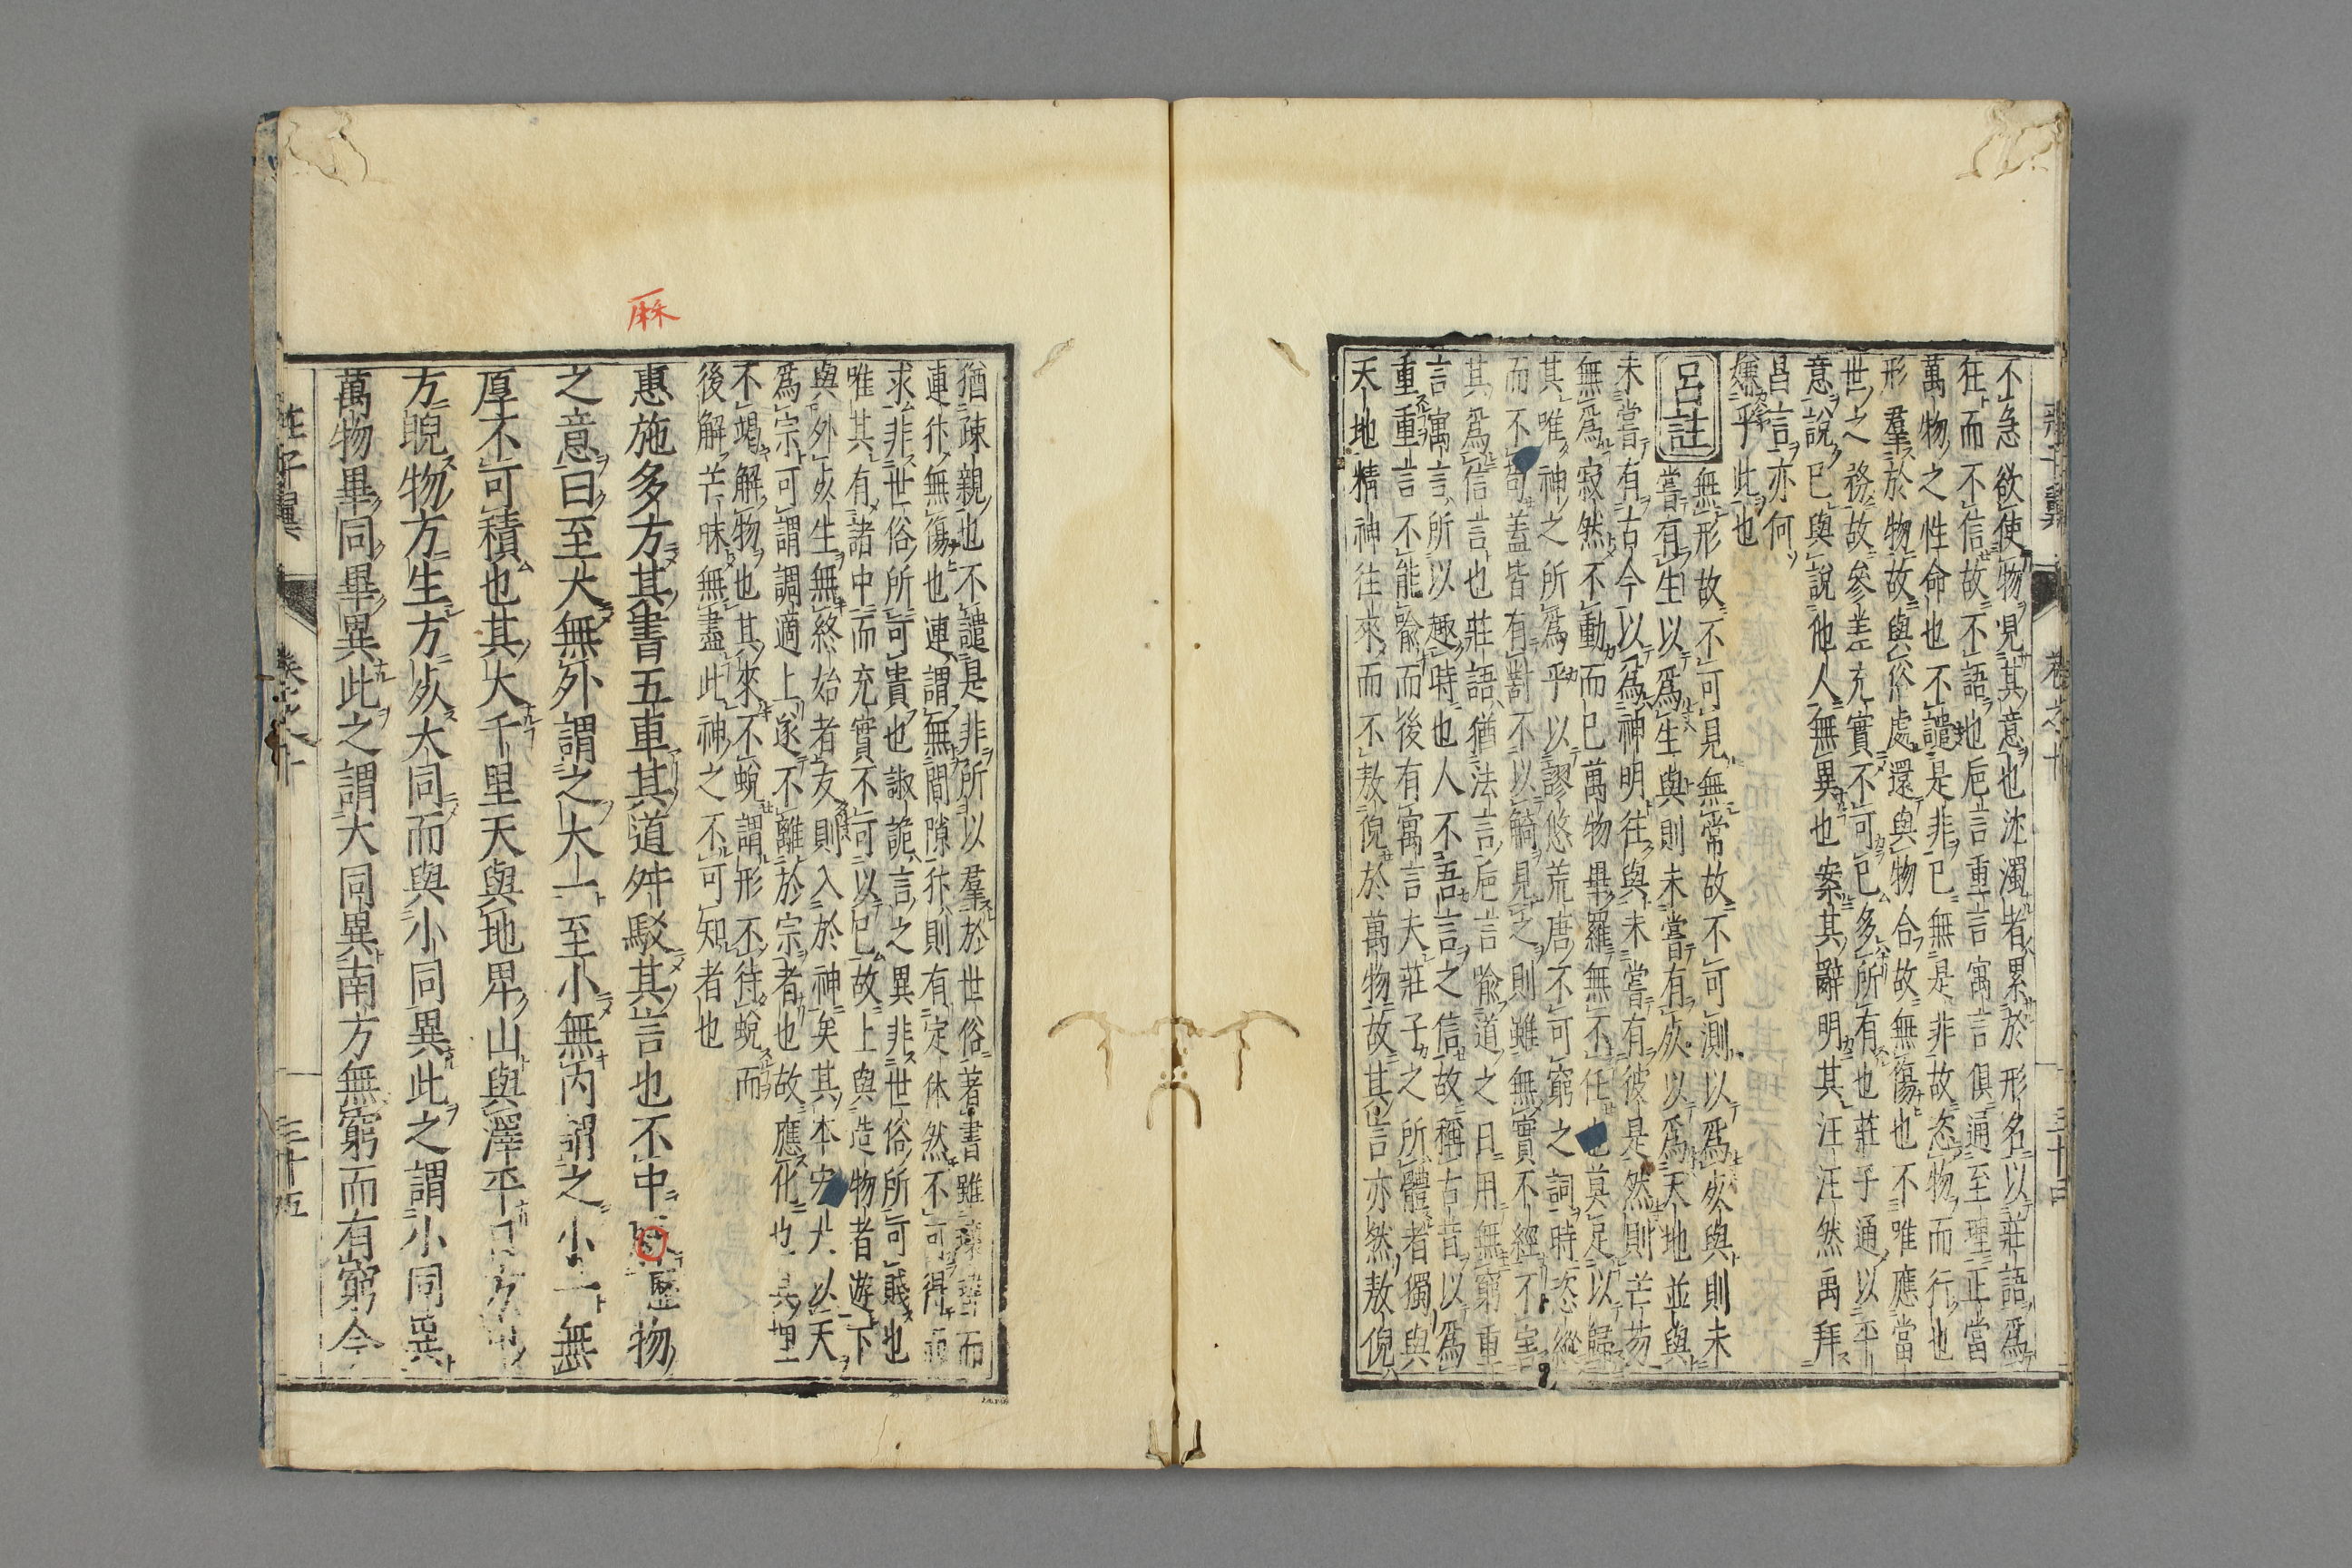 不急欲使物見其意也沈濁者累於形名以莊語爲
狂而不信故不語也巵言重言寓言俱通至理正當
萬物之性命也不譴是非已無是非故恣物而行也
形羣於物故與俗處還與物合故無傷也不唯應當
世之務故參差充實不可已多所有也莊子通以平
意說已與說他人無異也案其辭明其汪汪然禹拜
昌言亦何
嫌乎此也
呂註
無形故不可見無常故不可測以爲死與則未
嘗有生以爲生與則未嘗有死以爲天地並與
未嘗有古今以爲神明往與未嘗有彼是然則芒芴
無爲寂然不動而已萬物畢羅無不任也莫足以歸
其唯神之所爲乎以謬悠荒唐不可窮之詞時恣縱
而不苟蓋皆有對不以觭見之則雖無實不經不害
其爲信言也莊語猶法言巵言喩道之日用無窮重
言寓言所以趣時也人不吾言之信故稱古昔以爲
重重言不能喩而後有寓言夫莊子之所體者獨與
天地精神往來而不敖倪於萬物故其言亦然敖倪
莊子翼 卷之十 三十四
猶疎親也不譴是非所以羣於世俗著書雖瓌瑋而
連犿無傷也連謂無間隙犿則有定体然不可得而
求非世俗所可貴也諔詭言之異非世俗所可賤也
唯其有諸中而充實不可以已故上與造物者遊下
與外死生無終始者友則入於神矣其本宗以天
爲宗可謂調適上遂不離於宗者也故應化也其理
不竭解物也其來不蛻謂形不待蛻而
後解芒昧無盡此神之不可知者也
惠施多方其書五車其道舛駁其言也不中歷物
之意曰至大無外謂之大一至小無内謂之小一無
厚不可積也其大千里天與地卑山與澤平日方中
方睨物方生方死大同而與小同異此之謂小同異
萬物畢同畢異此之謂大同異南方無窮而有窮今
莊子翼 卷之十 三十五
麻